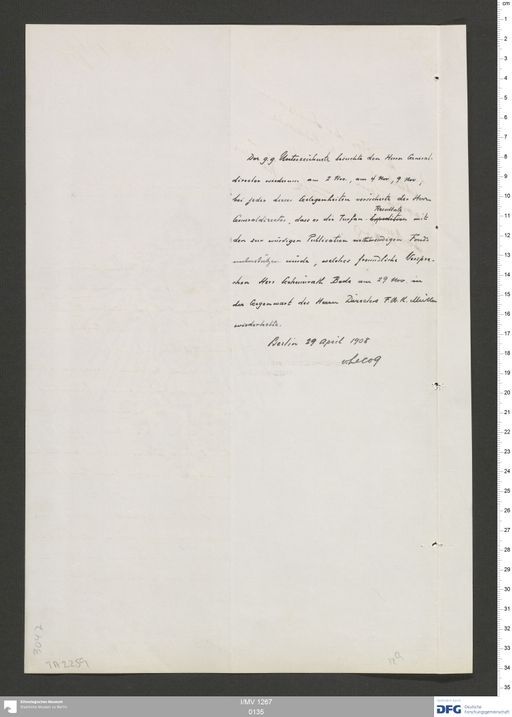 Der g. g. Unterzeichnete besuchte den Herrn General-
direktor wiederum am 2 Nov., am 4 Nov, 9 Nov,
bei jeder dieser Gelegenheiten versicherte der Herr
Resultate
Generaldirektor, dass er die Turfan Expedition mit
den zur würdigen Publication nothwendigen Fonds
unterstützen würde, welches freundliche Verspre-
chen Herr Geheimrath Bode am 29 Nov. in
der Gegenwart des Herrn Directors F. W. K. Müller
wiederholte.
Berlin 29 April 1908
vLeCoq
3047
TA 2259
Ethnologisches Museum
Staatliche Museen zu Berlin
I/MV 1267
0135
DFG Deutsche
Forschungsgemeinschaft
cm
1
2
3
4
5
6
7
8
9
10
11
12
13
14
15
16
17
18
19
20
21
22
23
24
25
26
27
28
29
30
31
32
33
34
35